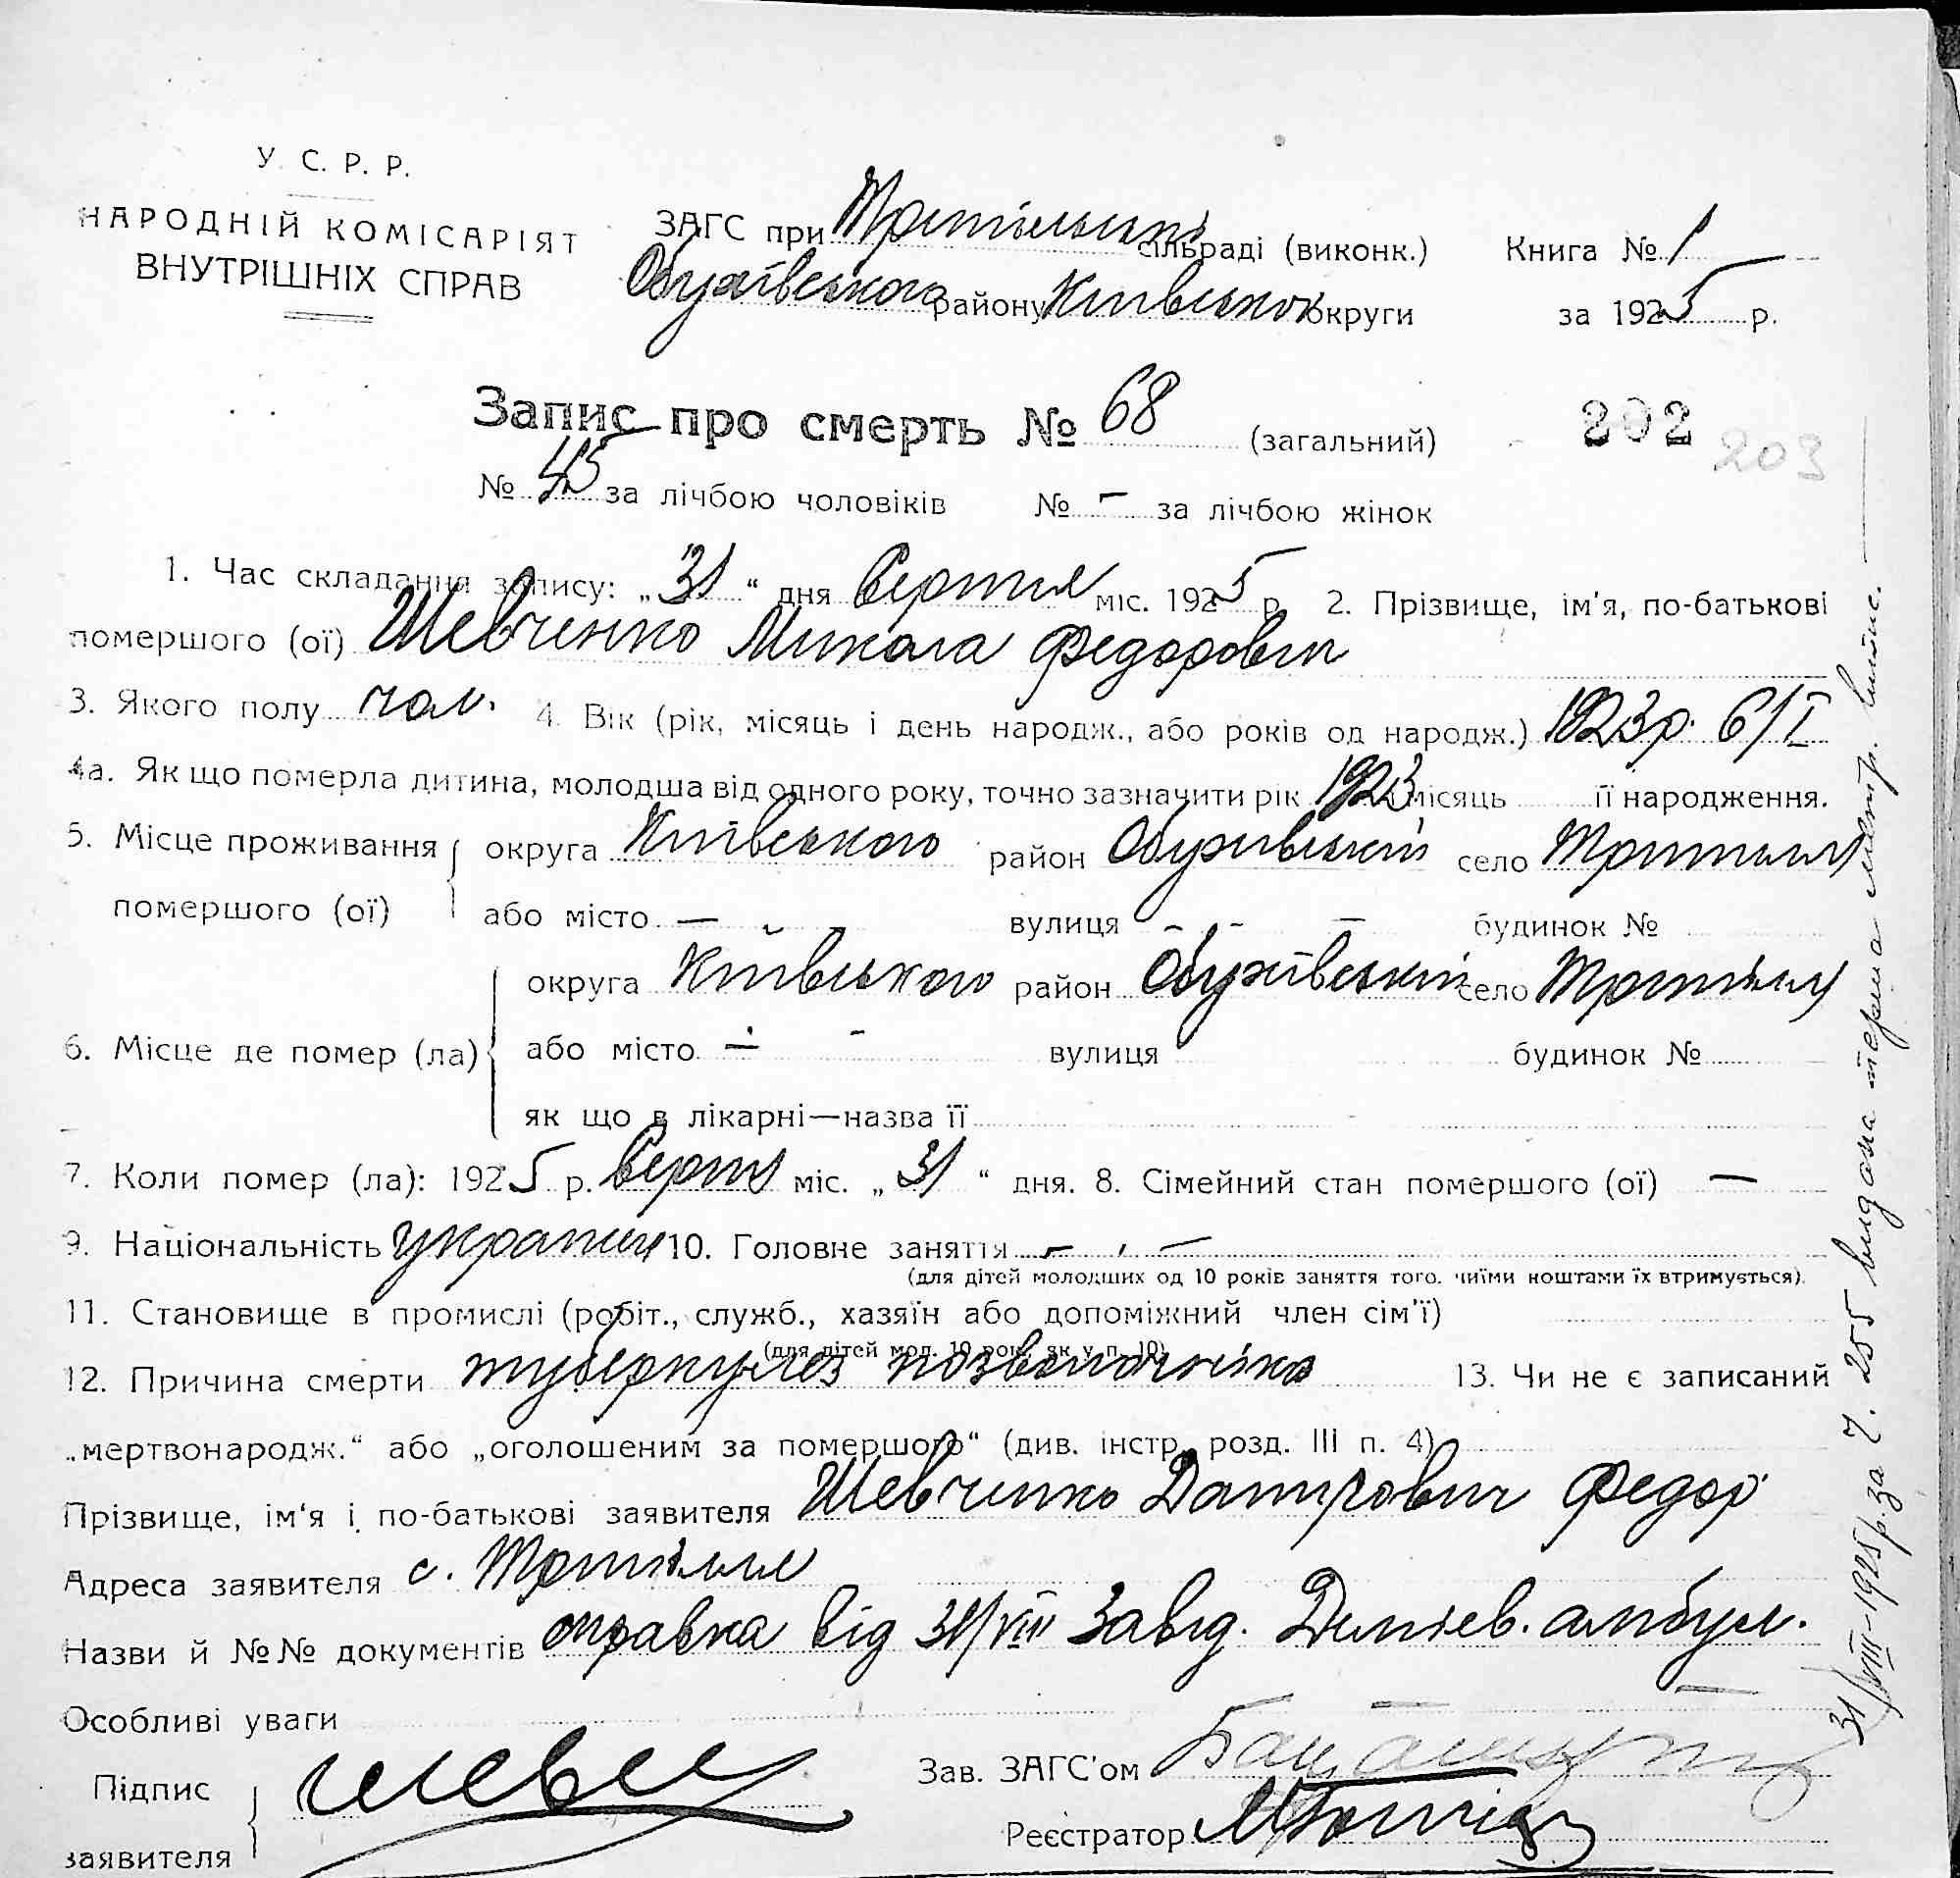 У. С. Р. Р.
НАРОДНІЙ КОМІСАРІЯТ
ВНУТРІШНІХ СПРАВ
ЗАГС при Трипільській сільраді (виконк.) Книга № 1
Обухівського району Київської округи за 1925 р.
Запис про смерть № 68 (загальний) 202 203
№ 45 за лічбою чоловіків № – за лічбою жінок
1. Час складання запису: „31“ дня Серпня міс. 1925 р. 2. Прізвище, ім'я, по-батькові
помершого (ої) Шевченко Микола Федорович
3. Якого полу чол. 4. Вік (рік, місяць і день народж., або років од народж.) 1923р. 6/I
4а. Як що померла дитина, молодша від одного року, точно зазначити рік 1923 місяць її народження.
5. Місце проживання округа Київського район Обухівський село Трипілля
помершого (ої) або місто — вулиця – – — будинок №
округа Київського район Обухівський село Трипілля
6. Місце де помер (ла) або місто — - вулиця будинок №
як що в лікарні—назва її
7. Коли помер (ла): 1925 р. Серпня міс. „31“ дня. 8. Сімейний стан помершого (ої) —
9. Національність 10. Головне заняття – —
(для дітей молодших од 10 років заняття того, чиїми коштами їх втримується).
11. Становище в промислі (робіт., служб., хазяїн або допоміжний член сім'ї)
(для дітей мол. 10 рок. як у п. 10)
12. Причина смерти туберкульоз 13. Чи не є записаний
„мертвонародж.“ або „оголошеним за помершого“ (див. інстр. розд. III п. 4)
Прізвище, ім'я і по-батькові заявителя Шевченко Федор
Адреса заявителя с. Трипілля
Назви й №№ документів справка від 31/VIII Завід. амбул.
Особливі уваги
Підпис
заявителя
Зав. ЗАГС'ом
Реєстратор
31/VIII-1925р. за Ч. 255 видана перша метр. випис.